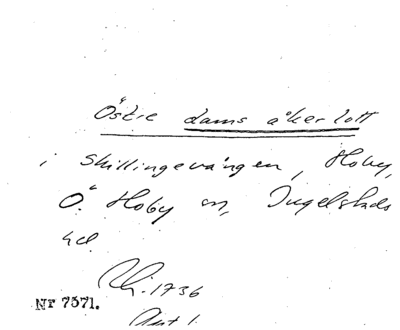 Östre dams åker lott
i Skillingevången, Hoby,
Ö. Hoby sn, Ingelstads
hd
Rv. 1736
Nr 7571.
Akt 1.